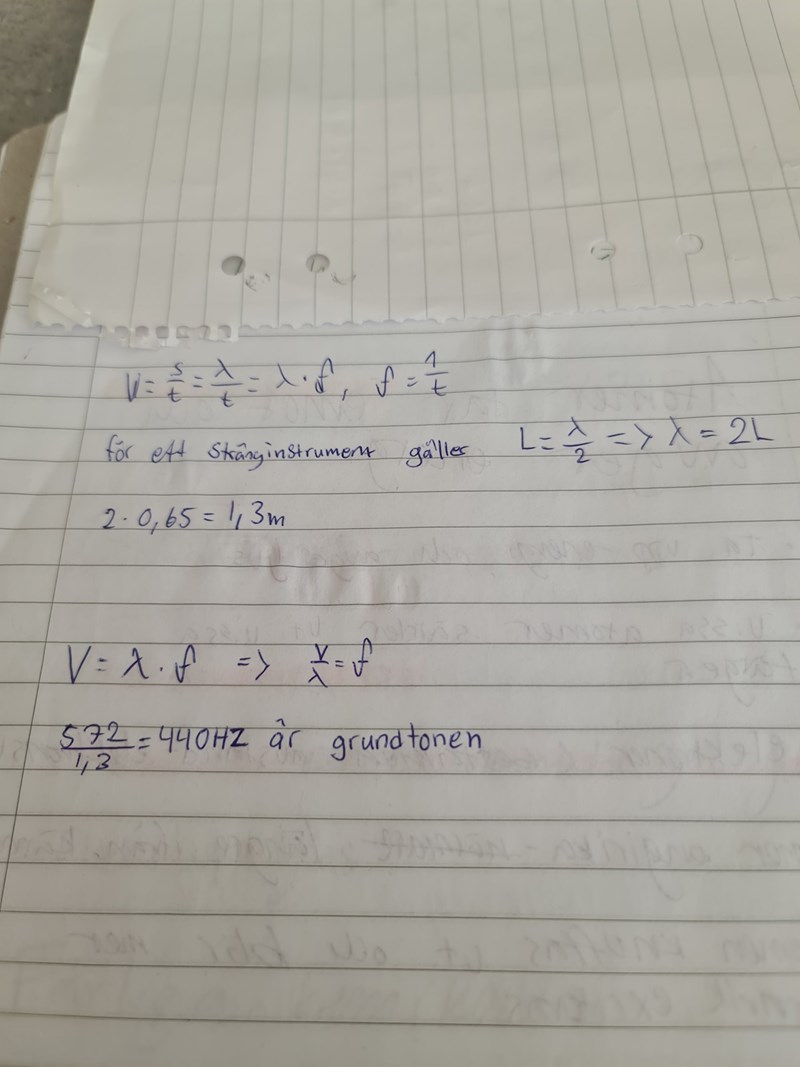 V = s/t = λ/t = λ · f, f = 1/t
för ett stränginstrument gäller L = λ/2 => λ = 2L
2 · 0,65 = 1,3m
V = λ · f => v/λ = f
572/1,3 = 440HZ är grundtonen